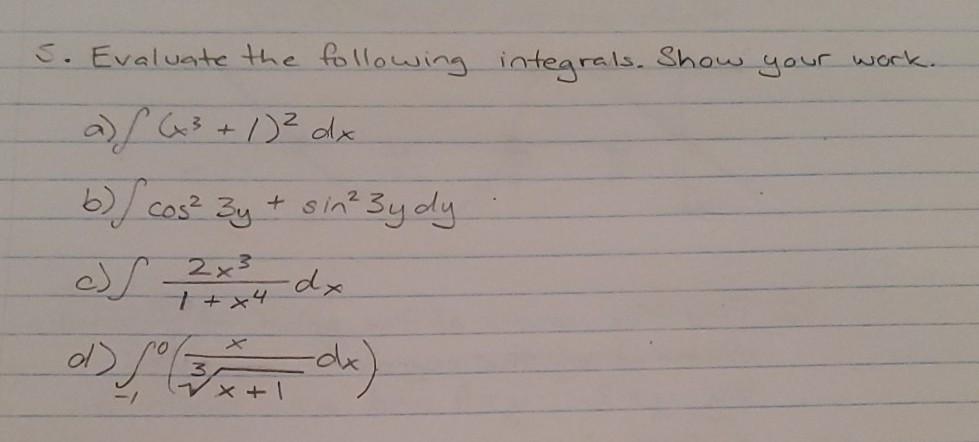 5. Evaluate the following integrals. Show your work.
a) ∫ (x³ + 1)² dx
b) ∫ cos² 3y + sin² 3y dy
c) ∫ 2x³ / 1 + x⁴ dx
d) ∫₋₁⁰ (x / ∛x + 1 dx)